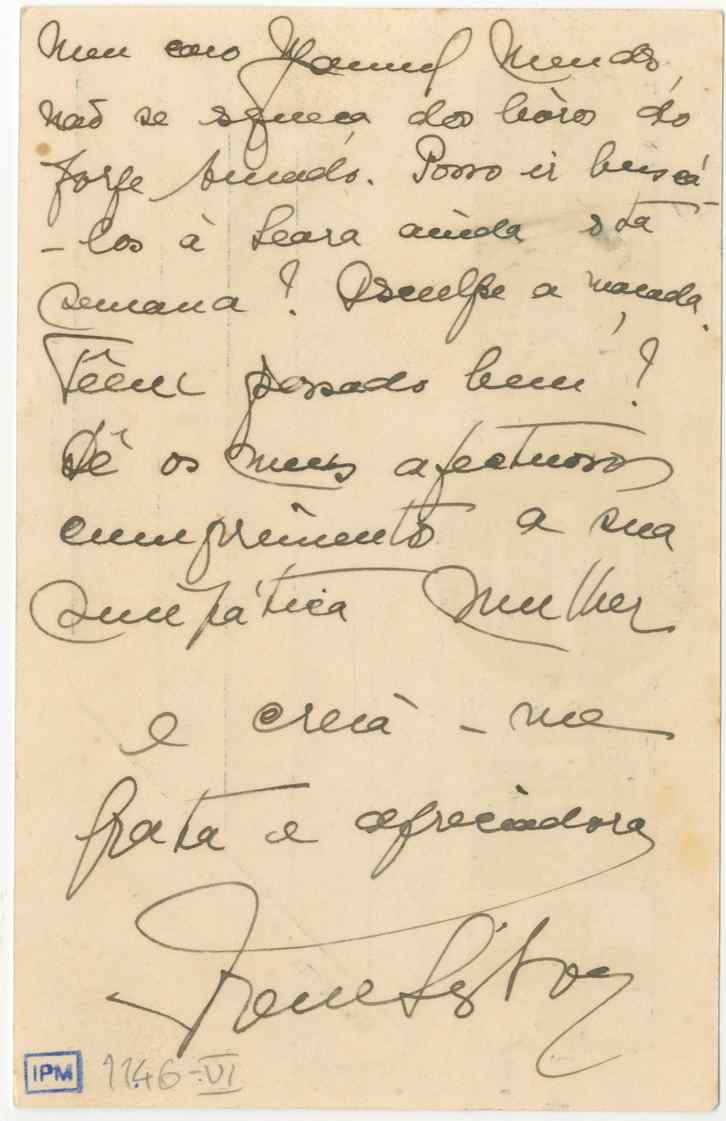 Meu caro Manuel Mendes,
não se esqueça dos livros do
Jorge Amado. Posso ir buscá-
-los à Seara ainda esta
semana? Desculpe a maçada.
Têem passado bem?
Dê os meus afectuosos
cumprimentos a sua
simpática mulher
e creia-me
grata e apreciadora
Irene Lisboa
IPM 1146-VI